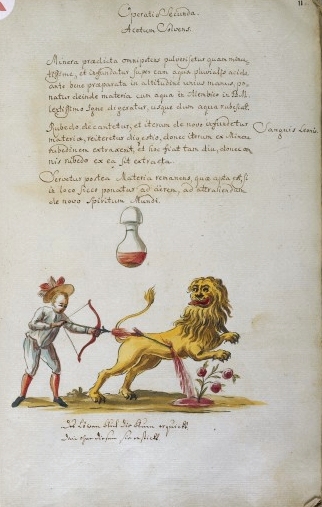 11.
Operatio Secunda.
Acetum Solvens.
Minera prædicta omnipotens pulverisetur quam minu,
tissime, et infundatur super eam aqua pluvialis acida
arte bene præparata in altitudine unius manus, po,
natur deinde materia cum aqua in Alembico in B.M.
lentissimo igne digeratur, usque dum aqua rubescat.
Rubedo decantetur, et iterum de novo infundetur
materia, reiteretur digestio, donec iterum ex Minera
rubedinem extraxerit, et hoc fiat tam diu, donec om
nis rubedo ex ea sit extracta.
Sanguis Leonis.
Servetur postea Materia remanens, quæ apta est, si
in loco sicco ponatur ad aërem, ad attrahendum
de novo Spiritum Mundi.
Des Löwen Blut die